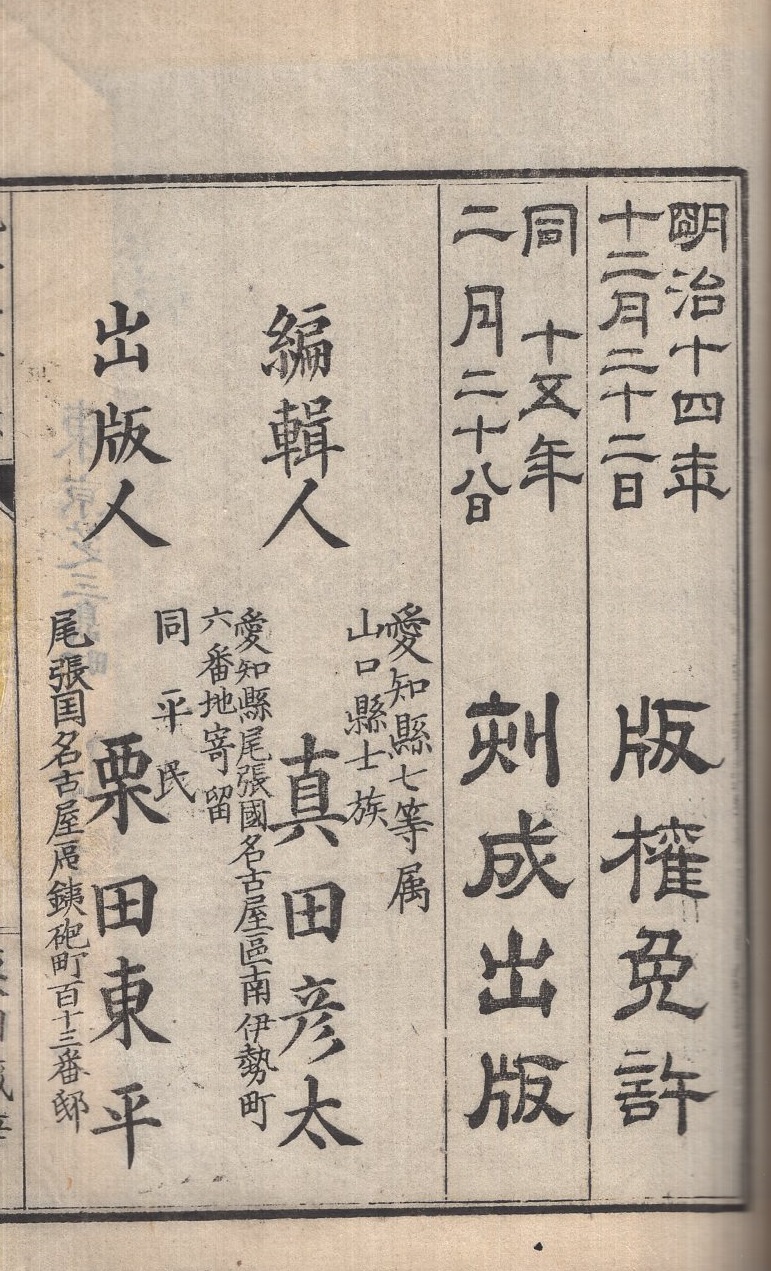 明治十四年
十二月二十二日
版權免許
同 十五年
二月二十八日
刻成出版
愛知縣七等属
山口縣士族
編輯人 真田彦太
愛知縣尾張國名古屋區南伊勢町
六番地寄留
同 平民
出版人 栗田東平
尾張国名古屋区鉄砲町百十三番邸